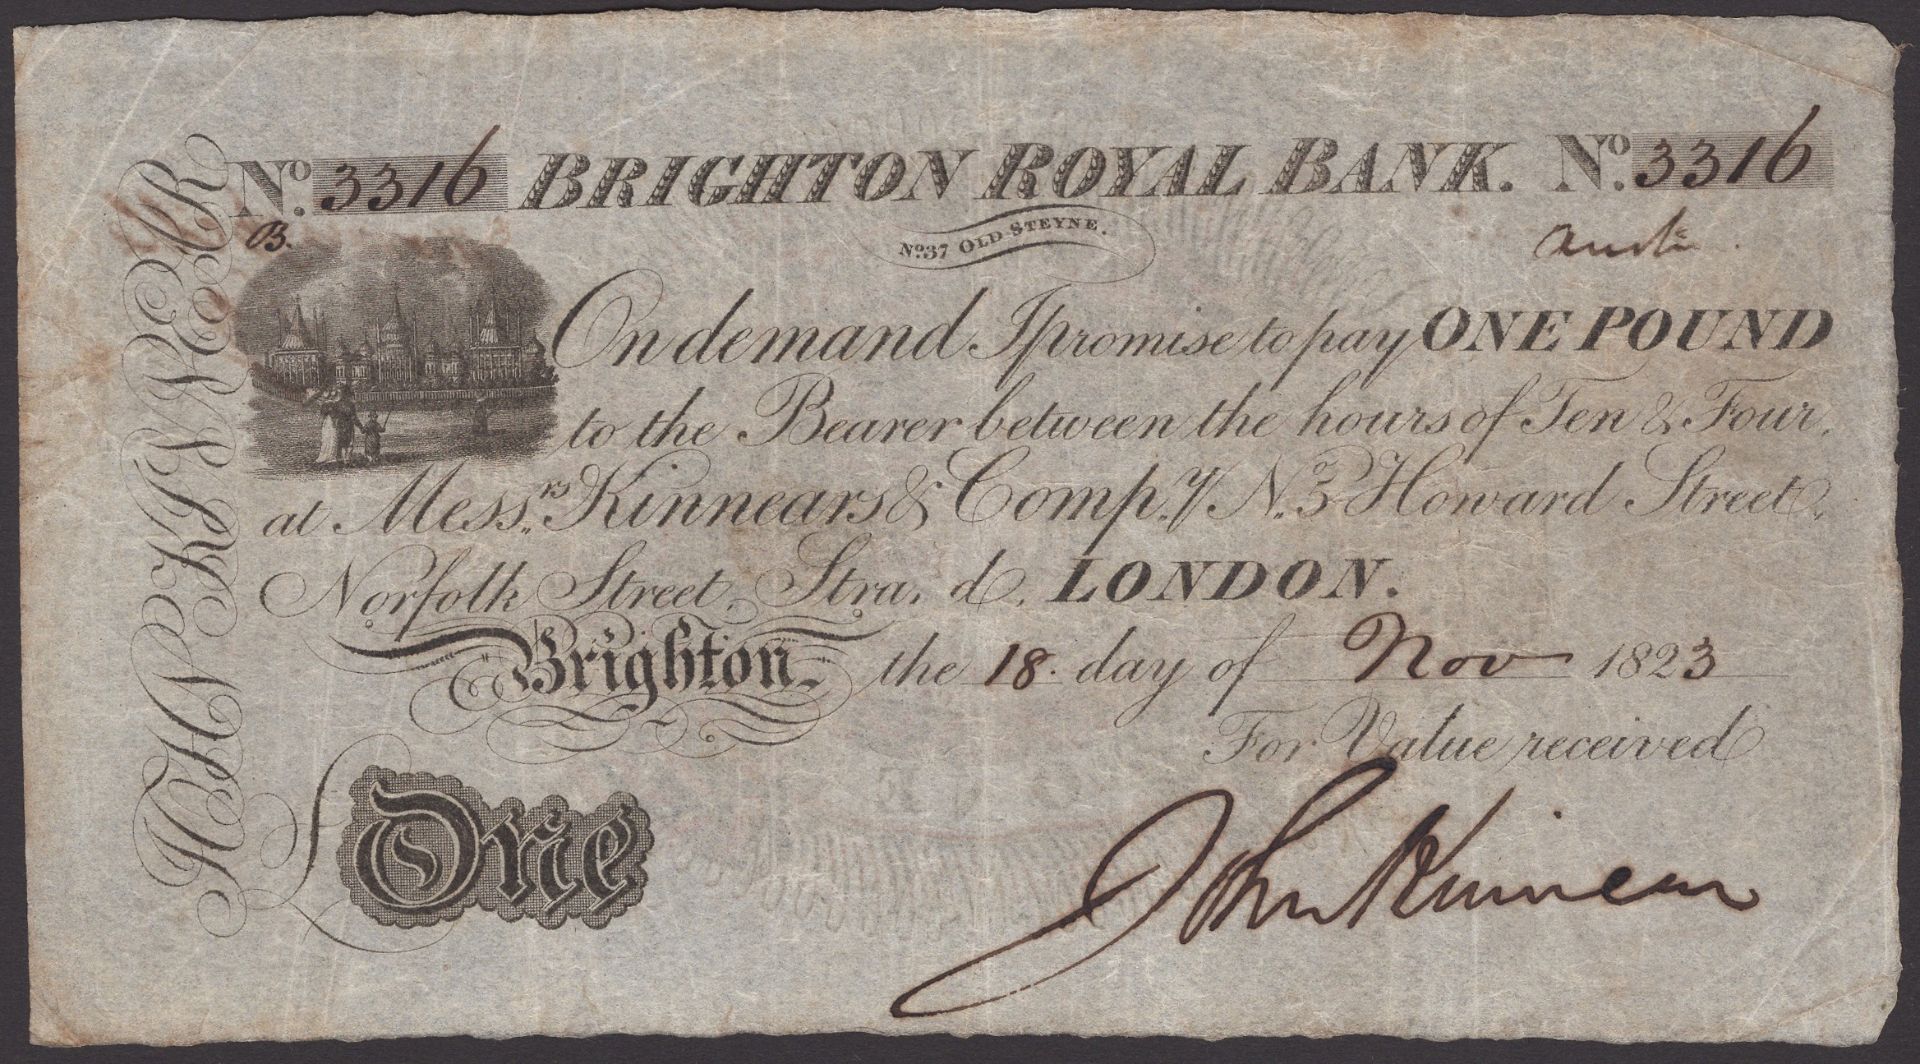 No. 3316 BRIGHTON ROYAL BANK. No. 3316
B.
No. 37 OLD STEYNE.
On demand I promise to pay ONE POUND
to the Bearer between the hours of Ten & Four,
at Messrs. Kinnears & Compy. No. 3 Howard Street,
Norfolk Street, Stra. d, LONDON.
Brighton, the 18. day of Nov 1823
For Value received
£ One
John Kinnear
JOHN KINNEAR